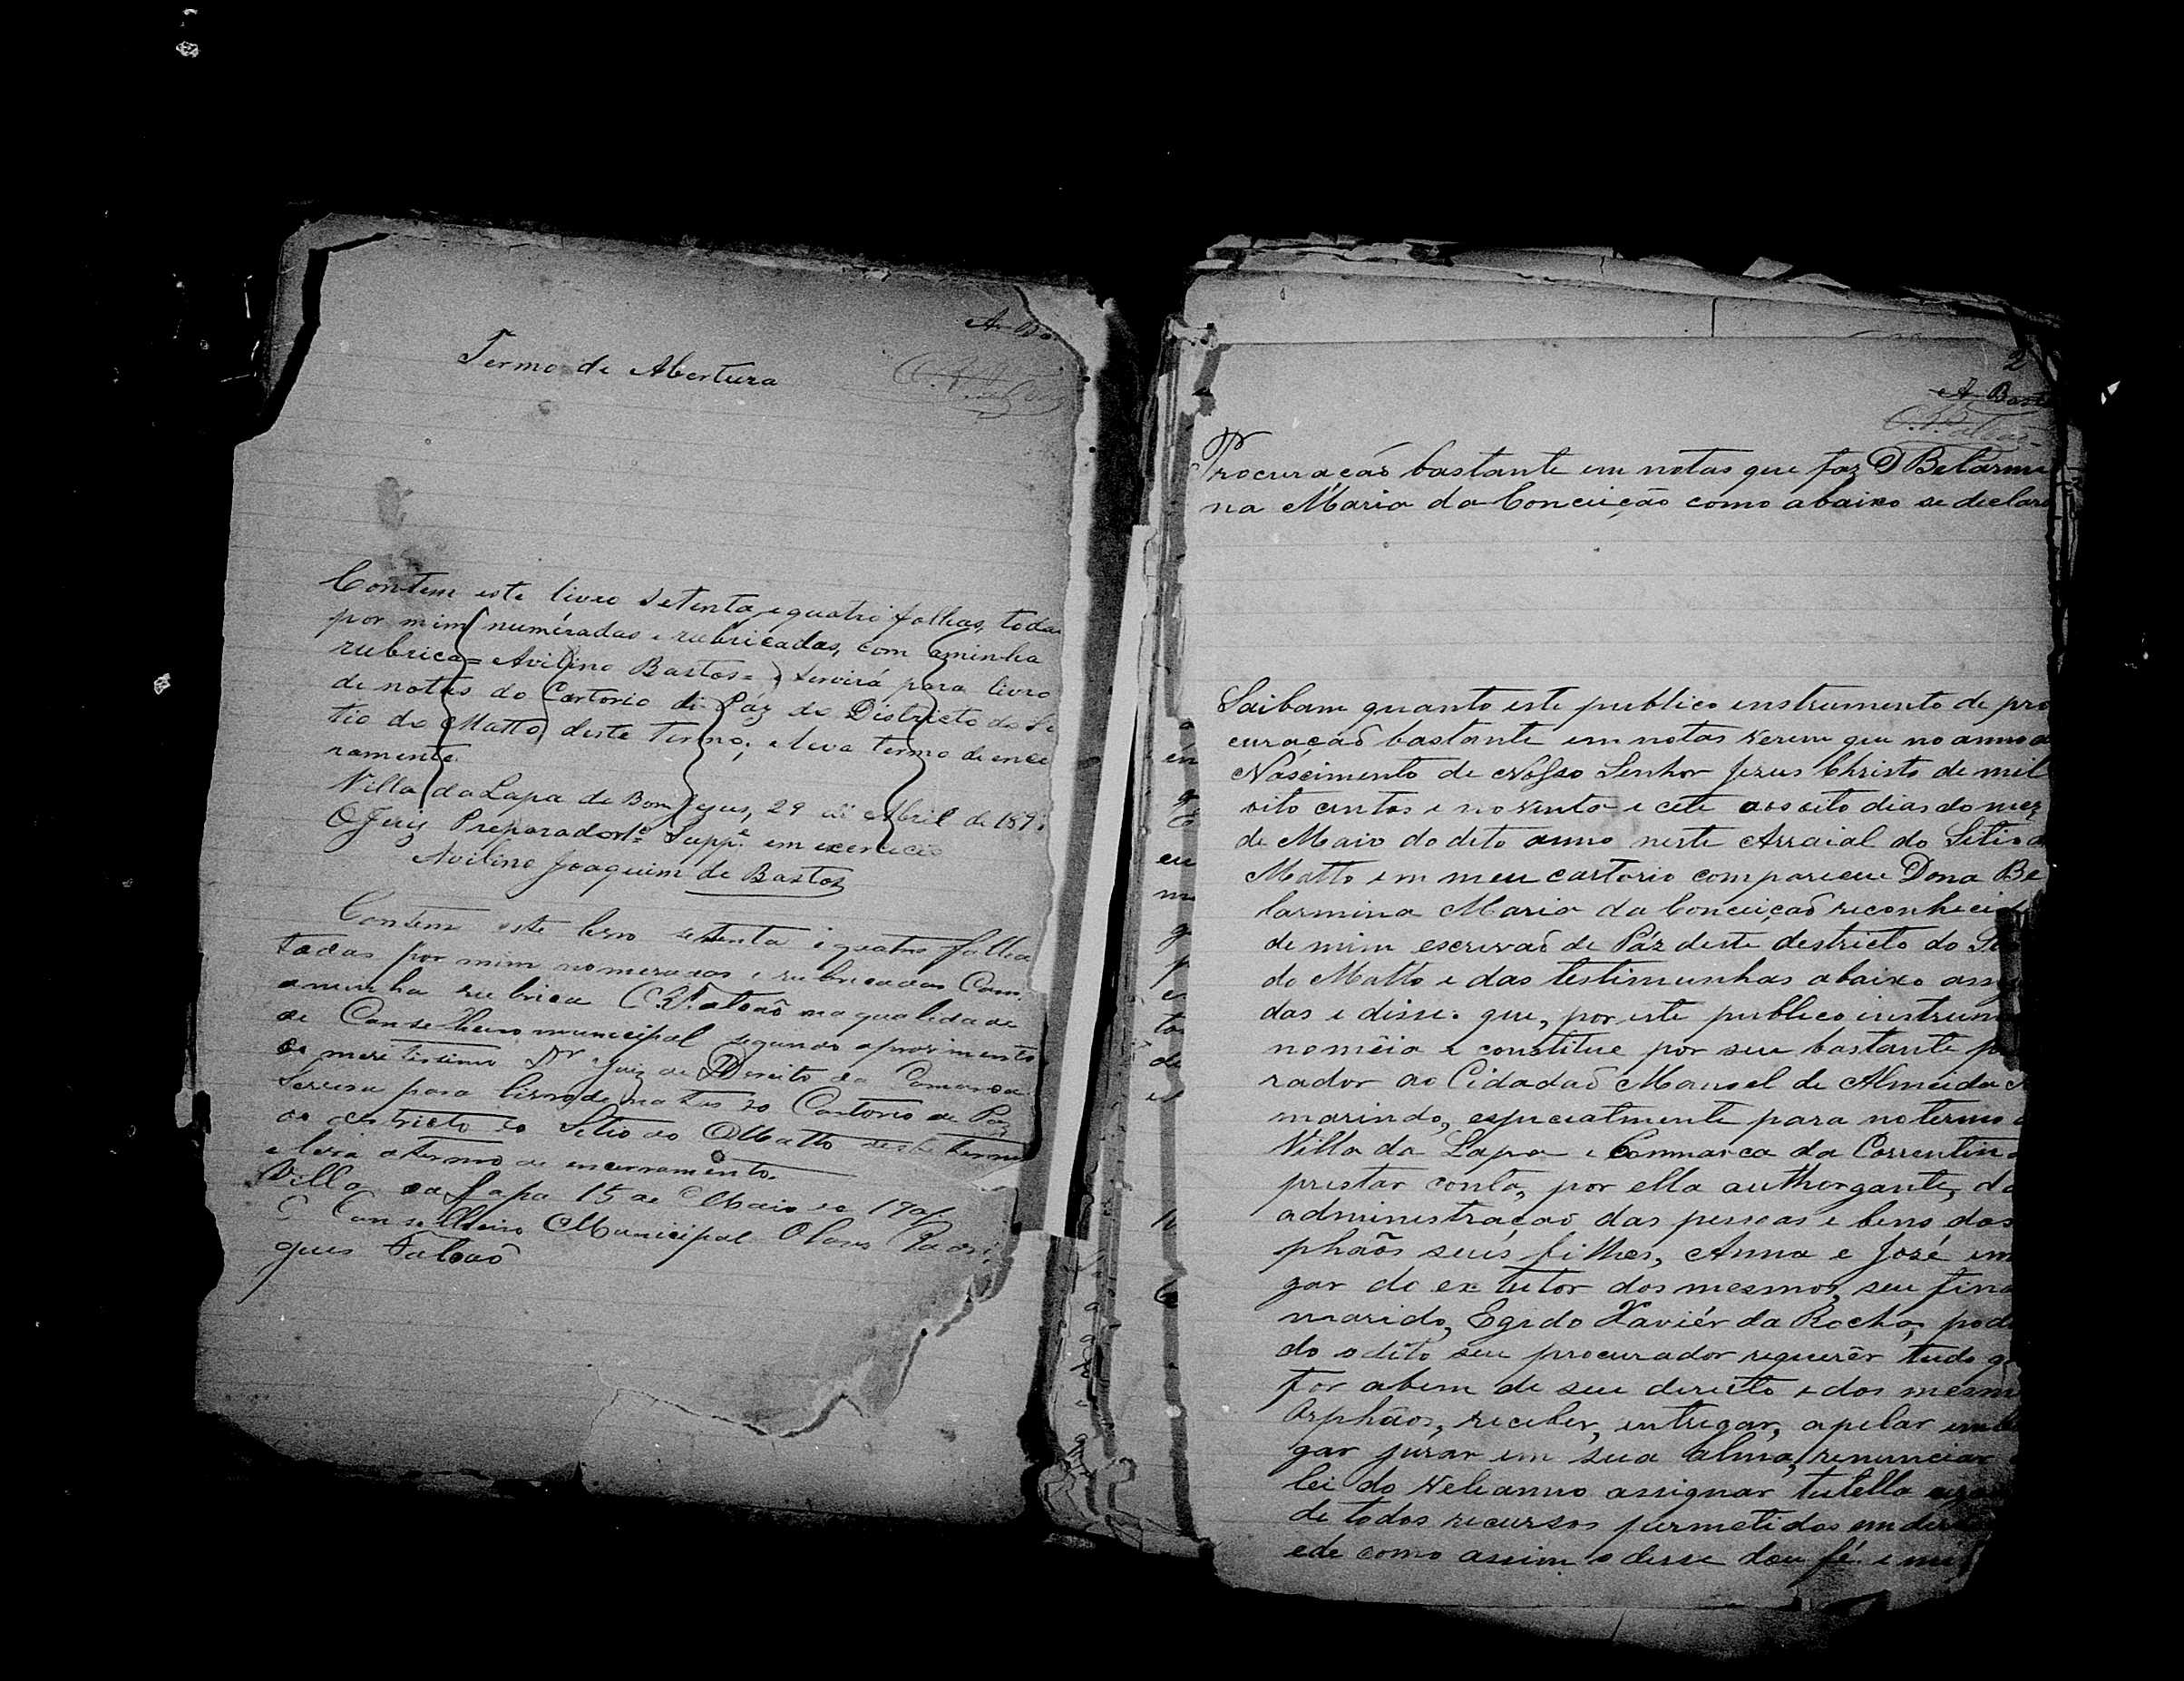 Termo de Abertura
Contem este livro setenta e quatro folhas, todas
por mim numéradas e rubricadas, com aminha
rubrica = Avilino Bastos = e servirá para livro
de notas do Cartorio de Páz do Districto do Si
tio do Matto deste termo; e leva termo de ence
ramento.
Villa da Lapa de Bom Jesus, 29 de Abril de 189
O Juiz Preparador Supp.e em exercicio
Avilino Joaquim de Bastos
Contem este livro setenta e quatro folhas
todas por mim nomeradas e rubricadas Com
aminha rubrica Falcaõ na qualidade
de Conselheiro municipal segundo
o meretissimo Dr. Juiz de Direito da Comarca
Servira para livro de notas do Cartorio de Paz
do destricto do Sitio do Matto deste termo
e leva otermo de encerramento.
Villa da Lapa 15 de Maio de 1901
O Conselheiro Municipal Rodri
gues Falcaõ
2
A. Bast
Procuraçaõ bastante em notas que faz D Belarmi
na Maria da Conceição como abaixo se declara
Saibam quanto este publico enstrumento de pro
curaçaõ bastante em notas verem que no anno d
Nascimento de Nosso Senhor Jezus Christo de mil
oito centos e novento e cete aos oito dias do mez
de Maio do dito anno neste Arraial do Sitio d
Matto em meu cartorio compareceu Dona Be
larmina Maria da Conceiçaõ reconhecid
de mim escrevaõ de Páz deste destricto do Si
do Matto e das testimunhas abaixo assi
das e disse. que, por este publico instrum
noméia e constitue por seu bastante p
rador ao Cidadaõ Manoel de Almeida
marindo, especialmente para no termo d
Villa da Lapa e Commarca da Correntin
prestar conta, por ella authorgante, da
administraçaõ das pessoas e bens dos
phaõs seus filhos, Anna e José em
gar do ex tutor dos mesmos, seu fina
marido, Egido Xaviér da Rocha, pode
do o dito seu procurador requerêr tudo q
for abem de seu direito e dos mesm
Orphãos, receber, entregar, apelar emb
gar jurar em sua alma, renunciar
lei do Veleanno assignar tutella
de todos recursos permetidos em dire
ede como assim o desse dou fé e